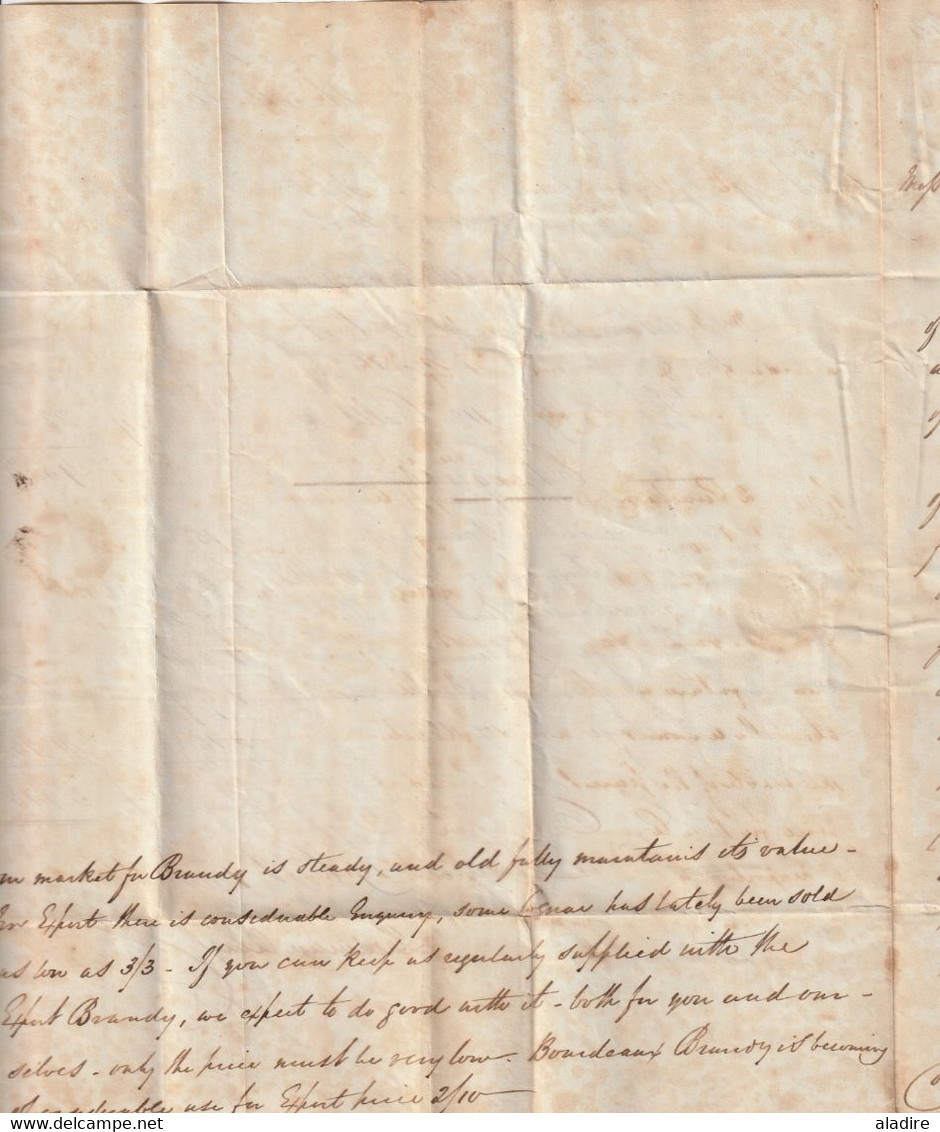 market for Brandy is steady, and old fully maintains its value -
For Export there is considerable Enquiry, some Cognac has lately been sold
as low as 3/3 - If you can keep us regularly supplied with the
Export Brandy, we expect to do good with it - both for you and our -
selves - only the price must be very low - Bourdeaux Brandy is becoming
of considerable use for Export price 2/10
Mess
of
©www.delcampe.net
aladire